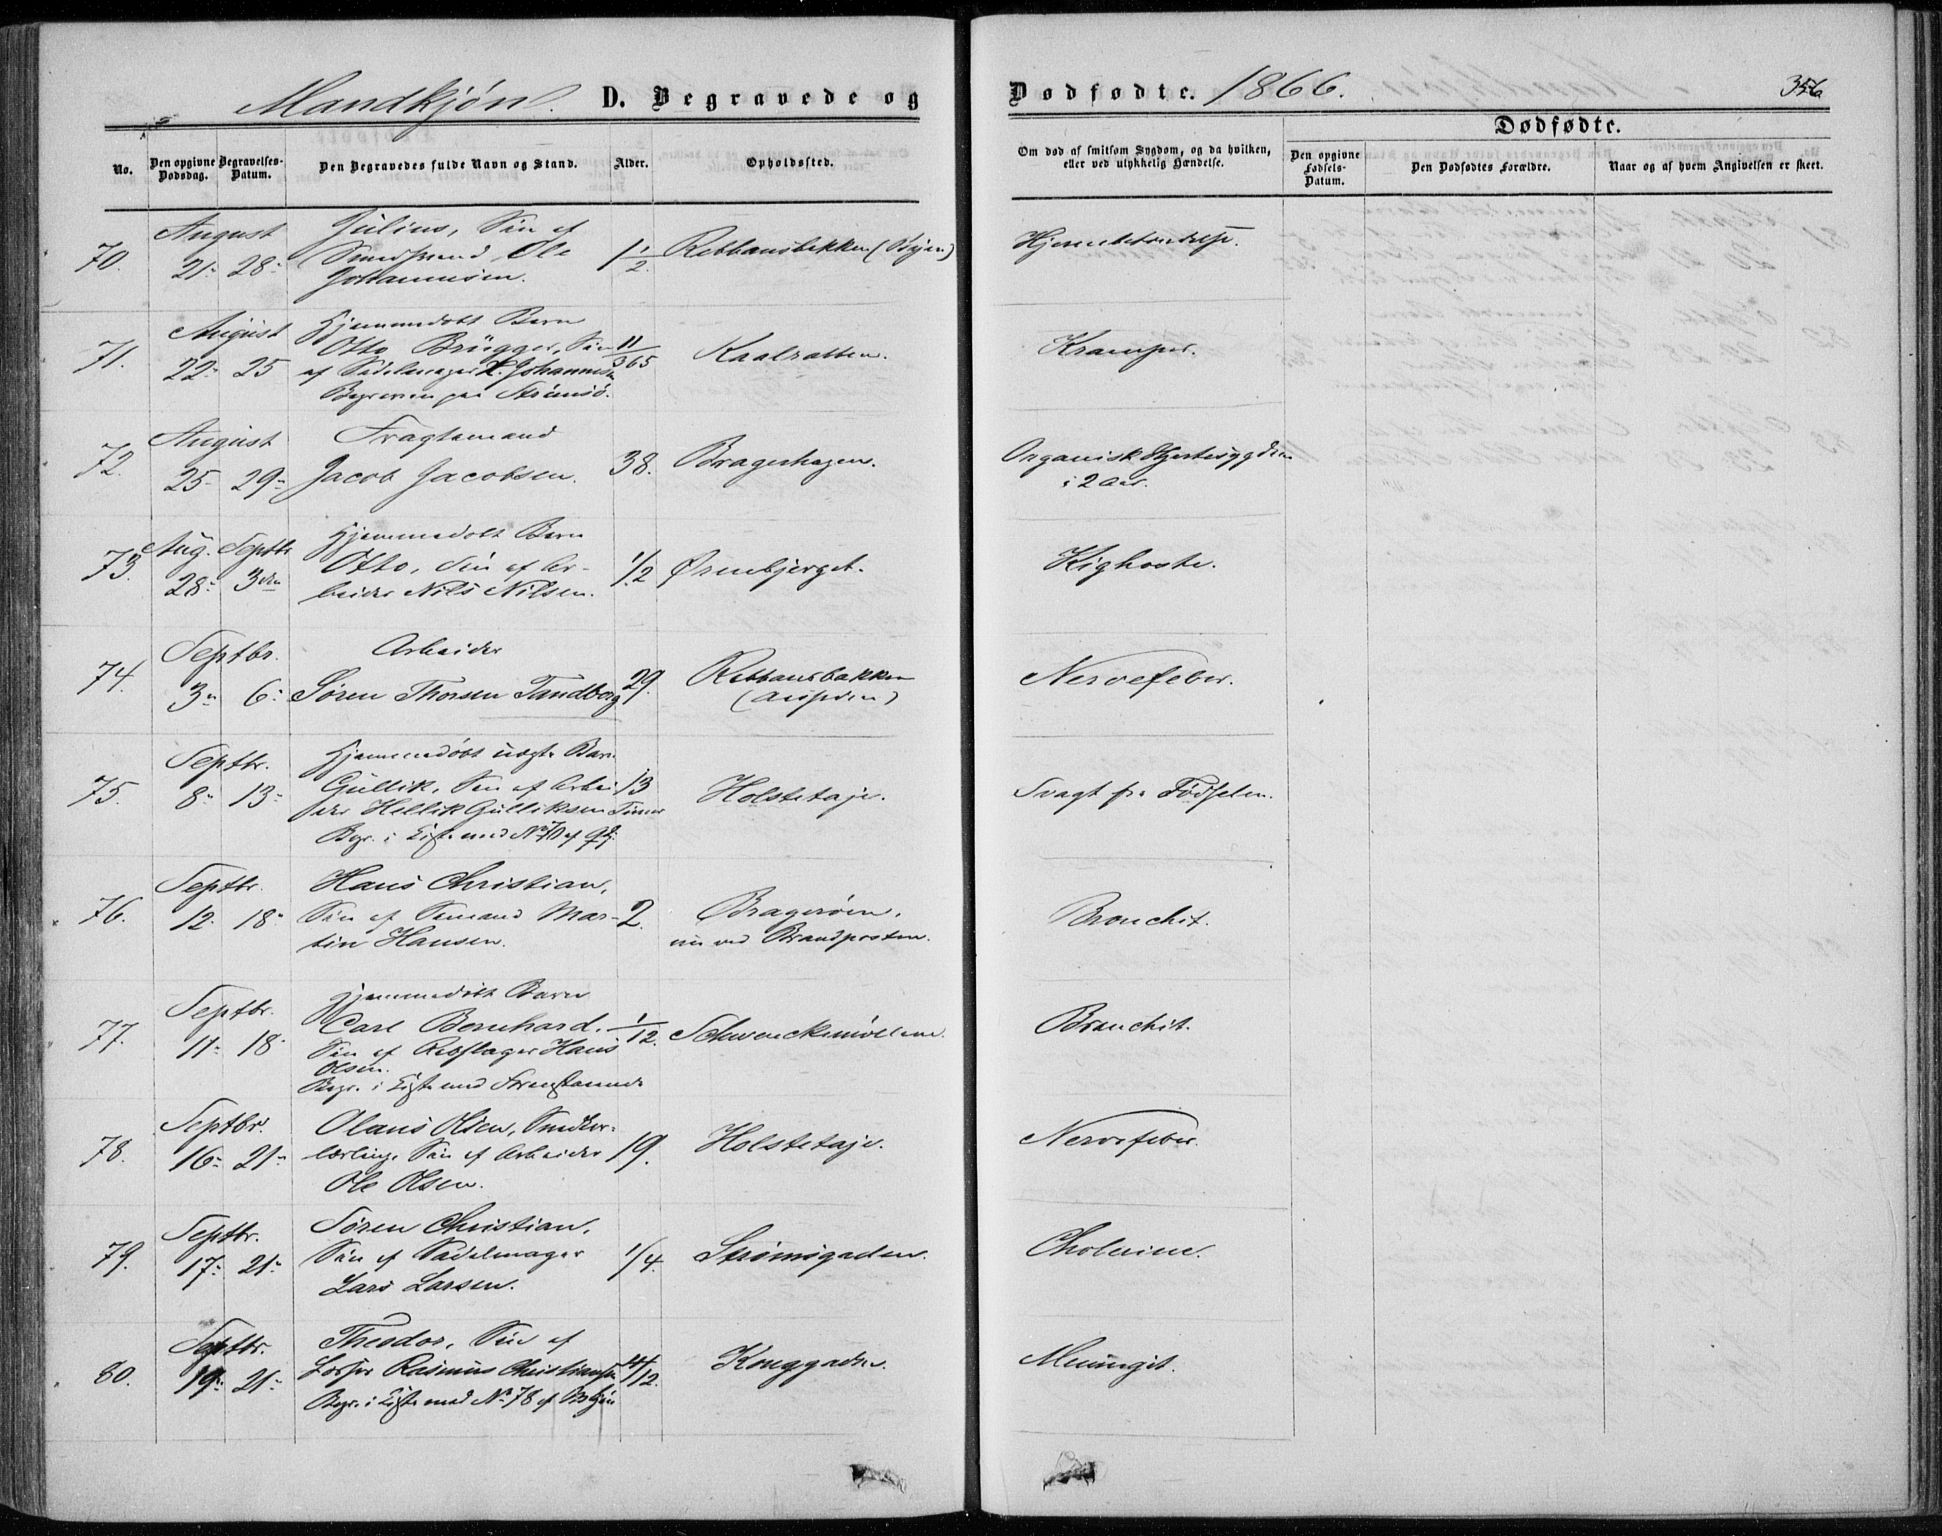 Mandkjøn. D. Begravede og
Dødfødte. 1866.
Dødfødte.
No.
Den opgivne Dødsdag.
Begravelses-Datum.
Den Begravedes fulde Navn og Stand.
Alder.
Opholdssted.
Om død af smitsom Sygdom, og da hvilken,
eller ved ulykkelig Hændelse.
Den opgivne
Fødsels-
Datum.
Den Dødfødtes Forældre.
Naar og af hvem Angivelsen er skeet.
70.
August
21. 28.
Julius, Søn af
Ole
Johannesen.
1 1/2.
Rebbansbakken (Byen)
Hjernebetændelse.
71.
August
22. 25
Hjemmedøbt Barn
Otto Brügger, Søn
af Sadelmager L. Johannesen
Begraven paa Strømsø.
11/365
Kaalrotten.
Kramper.
72.
August
25. 29.
Fragtemand
Jacob Jacobsen.
38.
Bragerhagen.
Organisk Hjertesygdom
i 2 Aar.
73.
Aug. Septbr
28. 3die
Hjemmedøbt Barn
Otto, Søn af Ar-
beider Nils Nilsen.
1/2
Ørenbjerget.
Kighoste.
74.
Septbr.
3. 6.
Arbeider
Søren Thorsen Tandberg
29.
Rebbansbakken
Nervefeber.
75.
Septbr.
8. 13.
Hjemmedøbt uægte Barn
Gullik, Søn af Arbei-
der Hellik Gulliksen
Begr. i Kiste med No 70 af Qkj.
13
Timer
Holstetaje.
Svagt fra Fødselen.
76.
Septbr.
12. 18.
Hans Christian,
Søn af Sømand Mar-
tin Hansen.
2.
Bragerøen,
nu ved Brandposten.
Bronchit.
77.
Septbr.
11. 18.
Hjemmedøbt Barn
Carl Bernhard,
Søn af Rebslager Hans
Olsen.
Begr. i Kiste med Forenstaaende
1/12.
Schwenckemøllene.
Bronchit.
78.
Septbr.
16. 21.
Olaus Olsen, Snedker-
lærling, Søn af Arbeider
Ole Olsen.
19.
Holstetaje.
Nervefeber.
79.
Septbr.
17. 21.
Søren Christian,
Søn af Sadelmager
Lars Larsen.
1/4.
Strømsgaden.
Cholerine.
80.
Septbr.
19. 21.
Theodor, Søn af
Rasmus Christiansen
Begr. i Kiste med No 78 af Mkjøn
4/12.
Konggaden.
Meningit.